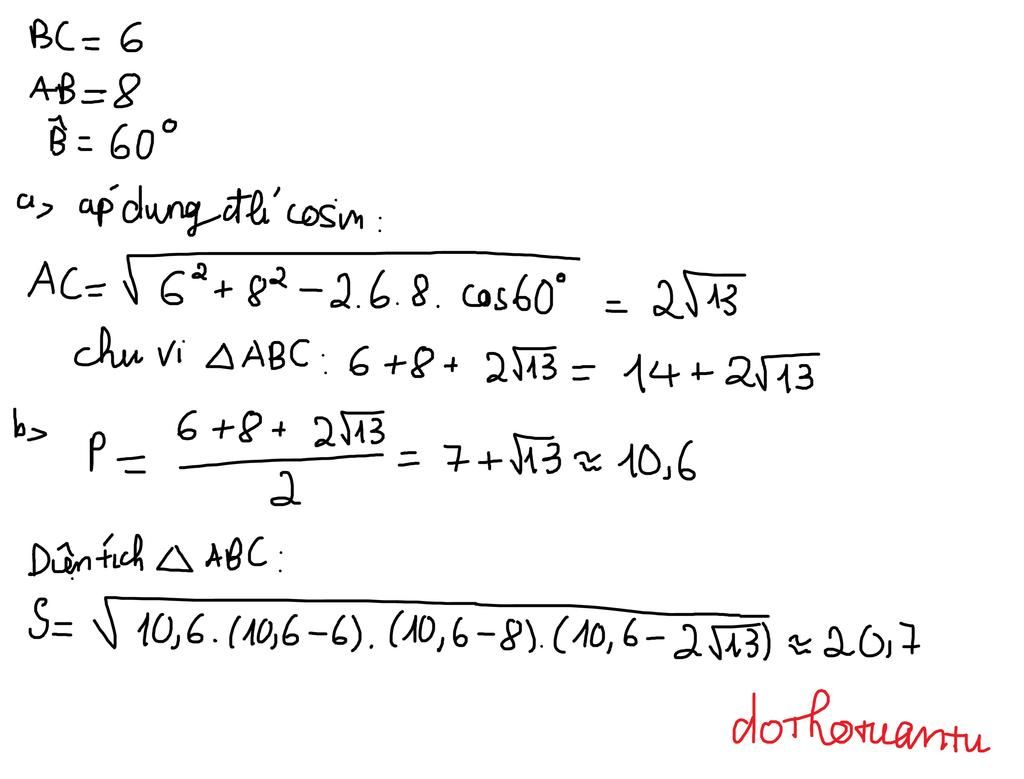 BC = 6
AB = 8
B̂ = 60°
a> áp dụng đlí cosin:
AC = √(6² + 8² - 2.6.8. cos60°) = 2√13
chu vi △ABC: 6 + 8 + 2√13 = 14 + 2√13
b> P = (6 + 8 + 2√13)/2 = 7 + √13 ≈ 10,6
Diện tích △ ABC:
S = √(10,6.(10,6-6).(10,6-8).(10,6-2√13)) ≈ 20,7
dothotuantu